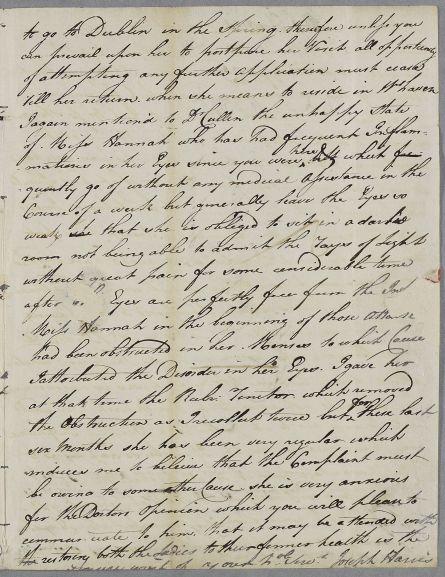 to go to Dublin in the Spring, therefore unless you
can prevail upon her to postpone her Visit all oppertunity
of attempting any further application must cease
till her return, when she means to reside in Whaven
I again mention'd to Dr Cullen the unhappy State
of Miss Hannah who has had frequent Inflam-
mations in her Eyes since you were here, which fre
quently go of without any medical Assistance in the
Course of a week but generally leave the Eyes so
weak that she is obliged to sit in a dark
room not being able to admit the Rays of Light
without great pain for some considerable time
after ye Eyes are perfectly free from the Inf
Miss Hannah in the beginning of those Attacks
had been obstructed in her Menses to which Cause
I attributed the Disorder in her Eyes. I gave her
at that time the Rub: Tinctor which removed
the Obstruction as I recollect twice but for these last
six Months she has been very regular which
induces me to beleive that the Complaint must
be owing to some other Cause. she is very anxious
for the Doctors Opinion which you will please to
communicate to him, that it may be attended with
the restoring both the Ladies to their former health is the
sincere wish of your Joseph Harris